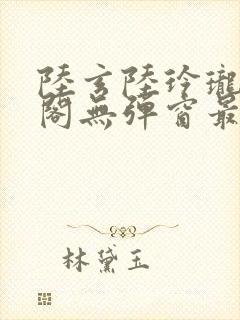 陸玄陸玲瓏
閣無彈窗最
林黛玉